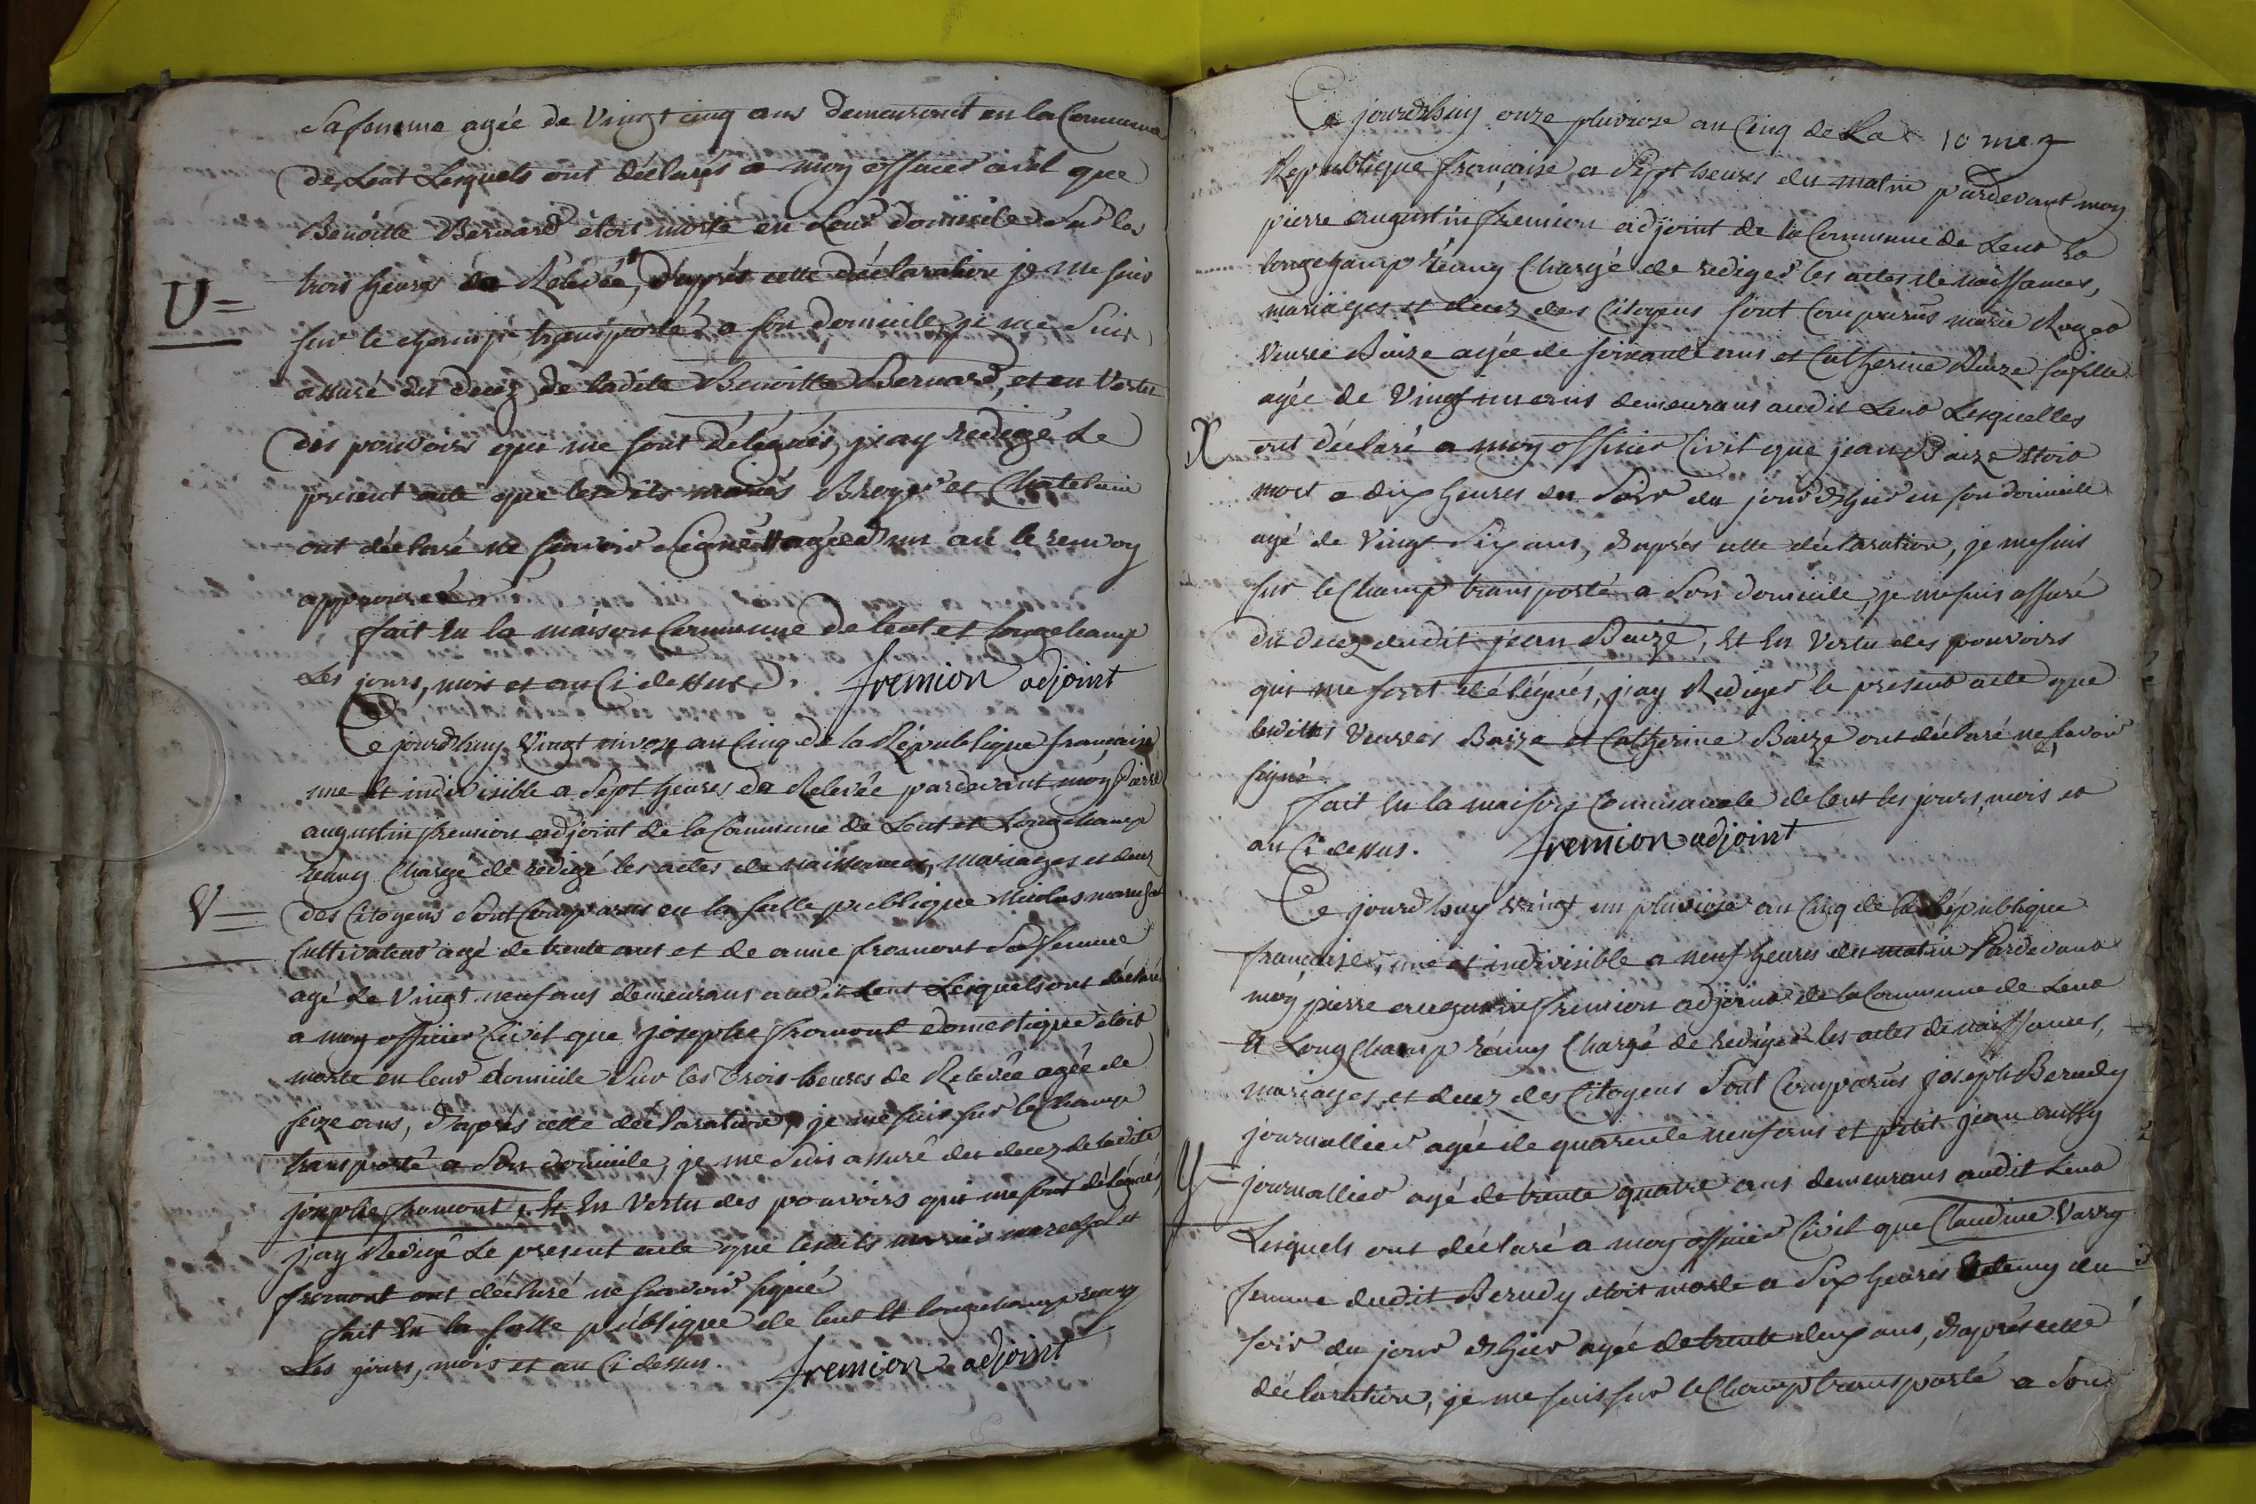 Sa femme agée de Vingt cinq ans demeurant en la Commune
de Lent Lesquels ont déclarés a moy officier civil que
Benoitte Bernard étoit morte en Leur domicile Sur les
U=
trois heures de Relevée, d'après cette déclaration je me suis
sur le champ transporté a son domicile, je me suis
assuré du decez de ladite Benoitte Bernard, et en Vertu
des pouvoirs qui me sont délégués, j'ay redigé Le
present acte que lesdits mariés Broyer et Chatelain
ont déclaré ne savoir Signé agée d'un an le renvoy
approuvé
fait En la maison Commune de lent et longchamp
Les jours, mois et an Ci dessus. fremion adjoint
Ce jourd'huy Vingt nivose an Cinq de la République française
une Et indivisible a Sept heures de Relevée pardevant moy Pierre
augustin fremion adjoint de la Commune de Lent et Longchamp
réuny Chargé de redigé les actes de naissances, mariages et decez
V=
des Citoyens Sont Comparus en la salle publique Nicolas marechal
Cultivateur agé de trente ans et de anne fromont Sa femme
agé de Vingt neuf ans demeurans audit Lent Lesquels ont déclaré
a moy officier Civil que josephe fromont domestique étoit
morte en leur domicile Sur les trois heures de Relevée agée de
seize ans, d'après cette déclaration, je me suis sur le Champ
transporté a Son domicile, je me Suis assuré du decez de ladite
josephe fromont, Et En Vertu des pouvoirs qui me sont délégués,
j'ay Redigé Le present acte que lesdits mariés marechal et
fromont ont déclaré ne savoir signé
fait En la salle publique de lent Et longchamp reuny
Les jours, mois et an Ci dessus. fremion adjoint
Ce jourd'huy onze pluviose an Cinq de La 10 mez
Republique française, a Sept heures du matin pardevant moy
pierre augustin fremion adjoint de la Commune de Lent Et
longchamp réuny Chargé de rediger les actes de naissances,
mariages et decez des Citoyens sont Comparus marie Roger
Veuve Baize agée de soixante ans et Catherine Baize sa fille
agée de Vingt ans demeurans audit Lent Lesquelles
X
ont déclaré a moy officier Civil que jean Baize étoit
mort a dix heures du Soir du jour d'hier en son domicile
agé de Vingt Six ans, d'après cette déclaration, je me suis
sur le Champ transporté a Son domicile, je me suis assuré
du decez dudit jean Baize, Et En Vertu des pouvoirs
qui me sont délégués, j'ay Rediger le present acte que
lesdittes Veuves Baize et Catherine Baize ont déclaré ne savoir
signé
fait En la maison Communale de lent les jours, mois et
an Ci dessus. fremion adjoint
Ce jourd'huy Vingt un pluviose an Cinq de la République
française, une et indivisible a neuf heures du matin Pardevant
moy pierre augustin fremion adjoint de la Commune de Lent
Et Longchamp réuny Chargé de rédiger les actes de naissances,
mariages et decez des Citoyens Sont Comparus joseph Berudy
journallier agée de quarente neuf ans et petit jean
Y=
journallier agé de trente quatre ans demeurans audit Lent
Lesquels ont déclaré a moy officier Civil que Claudine Varry
femme dudit Berudy étoit morte a Six heures Et demy du
soir du jour d'hier agée de trente deux ans, d'après cette
déclaration, je me suis sur le Champ transporté a Son